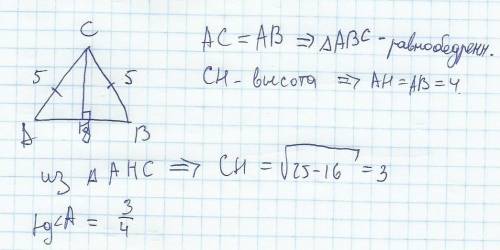 C
5 5
A H B
AC = AB ⇒ △ABC - равнобедренн.
CH - высота ⇒ AH = AB = 4.
из △ AHC ⇒ CH = √25-16 = 3
tg∠A = 3/4